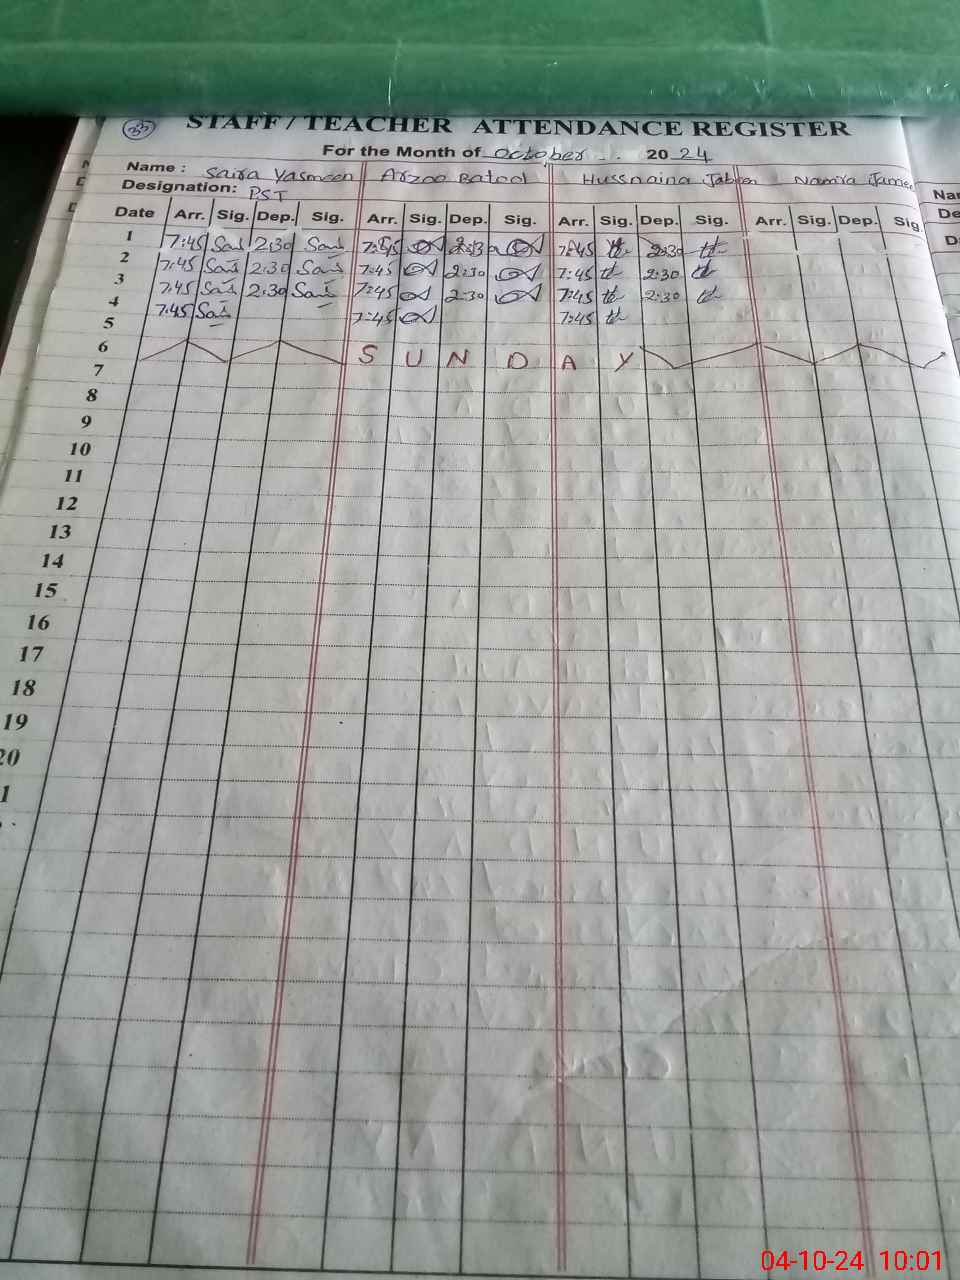 33
STAFF / TEACHER ATTENDANCE REGISTER
For the Month of October 2024
Name : Saira Yasmeen Arzoo Batool Hussnaina Jabeen Namra
Designation: PST
Date Arr. Sig. Dep. Sig. Arr. Sig. Dep. Sig. Arr. Sig. Dep. Sig. Arr. Sig. Dep. Sig.
1 7:45 Sai 2:30 Sai 7:45 2:30 7:45 2:30
2 7:45 Sai 2:30 Sai 7:45 2:30 7:45 2:30
3 7:45 Sai 2:30 Sai 7:45 2:30 7:45 2:30
4 7:45 Sai 7:45 7:45
5
6 S U N D A Y
7
8
9
10
11
12
13
14
15
16
17
18
19
20
1
04-10-24 10:01